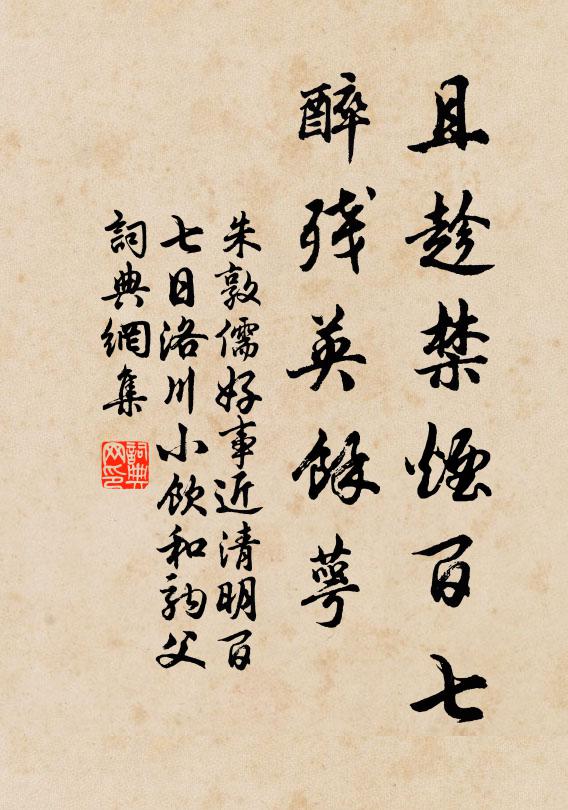 且趁禁煙百七
醉残英餘萼
朱敦儒好事近清明百
七日洛川小飲和駒父
詞典網集
詞典
网印